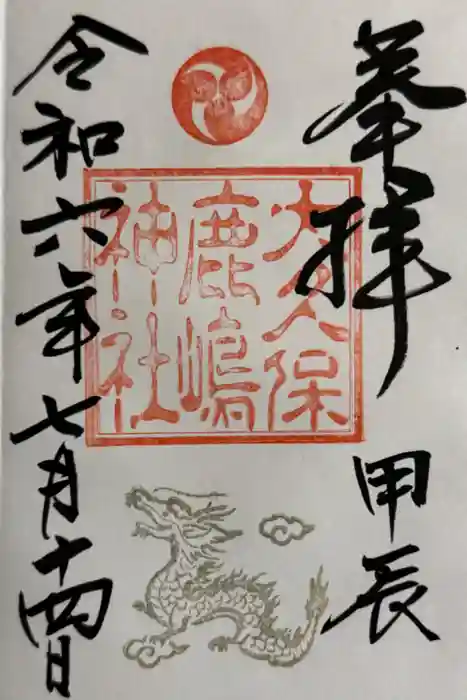 奉拝
甲辰
大久保
鹿嶋
神社
令和六年七月十四日